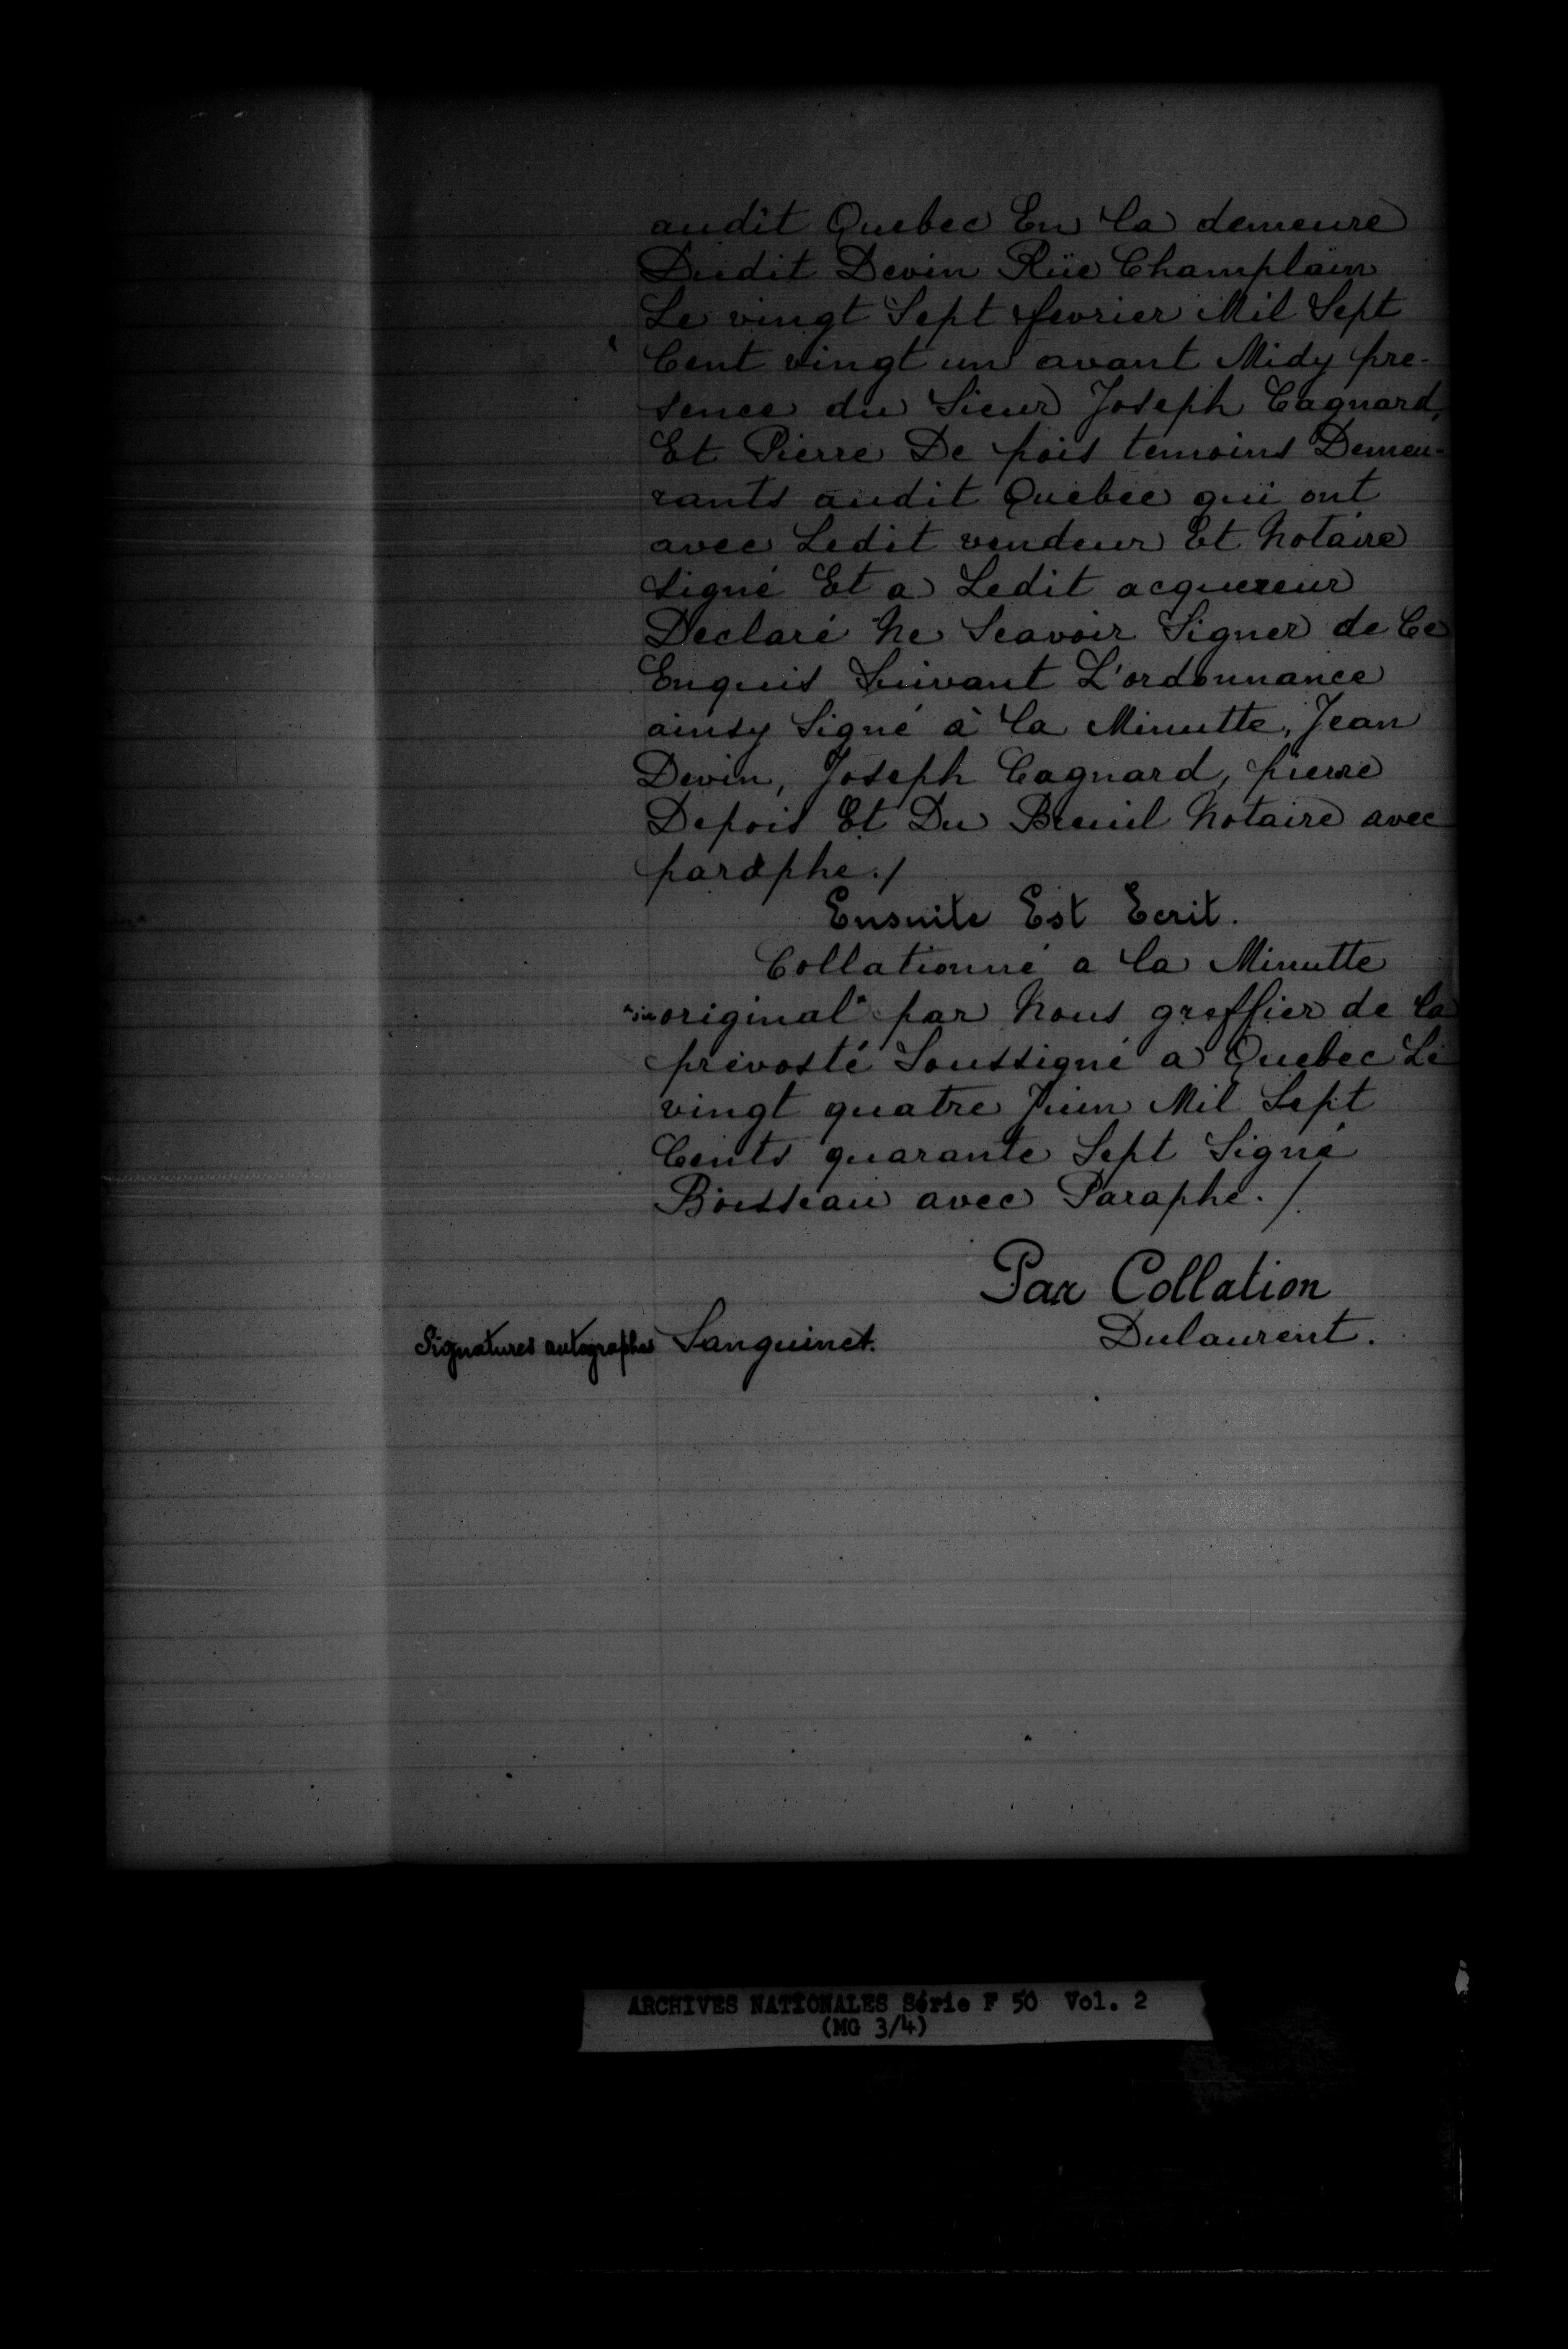 audit Quebec En la demeure
Dudit Devin Rüe Champlain
Le vingt Sept fevrier Mil Sept
Cent vingt un avant Midy pre-
sence du Sieur Joseph Cagnard,
Et Pierre De pois temoins Demeu-
rants audit Quebec qui ont
avec Ledit vendeur Et Notaire
signé Et a Ledit acquereur
Declaré Ne Scavoir Signer de Ce
Enquis Suivant L'ordonnance
ainsy Signé à la Minutte, Jean
Devin, Joseph Cagnard, pierre
Depois Et Du Breuil Notaire avec
paraphe./
Ensuite Est Ecrit.
Collationné a la Minutte
"sic original" par Nous greffier de la
prevosté Soussigné a Quebec Le
vingt quatre Juin Mil Sept
Cents quarante Sept Signé
Boisseau avec Paraphe./.
Par Collation
Signatures autographes Sanguinet. Dulaurent.
ARCHIVES NATIONALES Série F 50 Vol. 2
(MG 3/4)